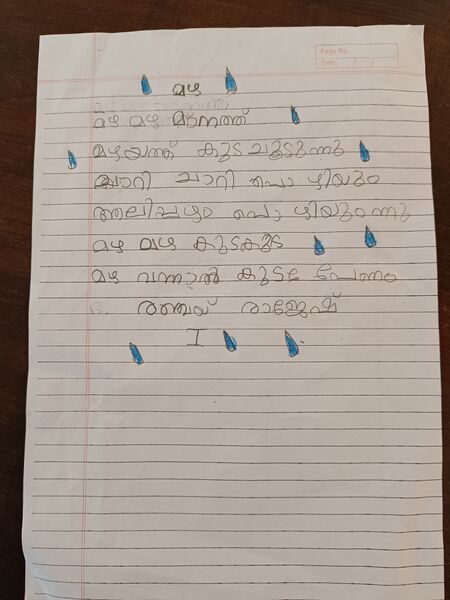 Page No.
Date: / /
മഴ
മഴ മഴ മാനത്ത്
മഴയത്ത് കുട ചൂടുന്നു
ചാറി ചാറി പൊ ഴിയും
ആലിപ്പഴം പൊ ഴിയുംന്നു
മഴ മഴ കുടകുട
മഴ വന്നാൽ കുട പേണം
രാജേഷ്
I